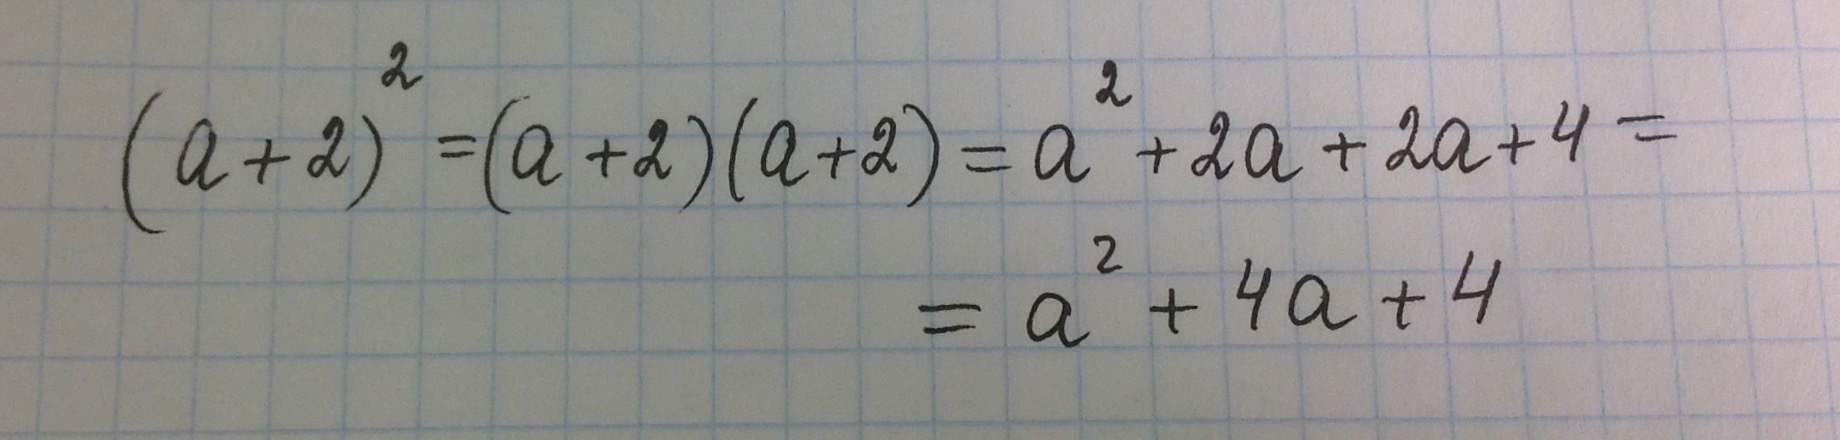 (a+2)² =(a+2)(a+2)= a²+2a+2a+4=
= a²+4a+4